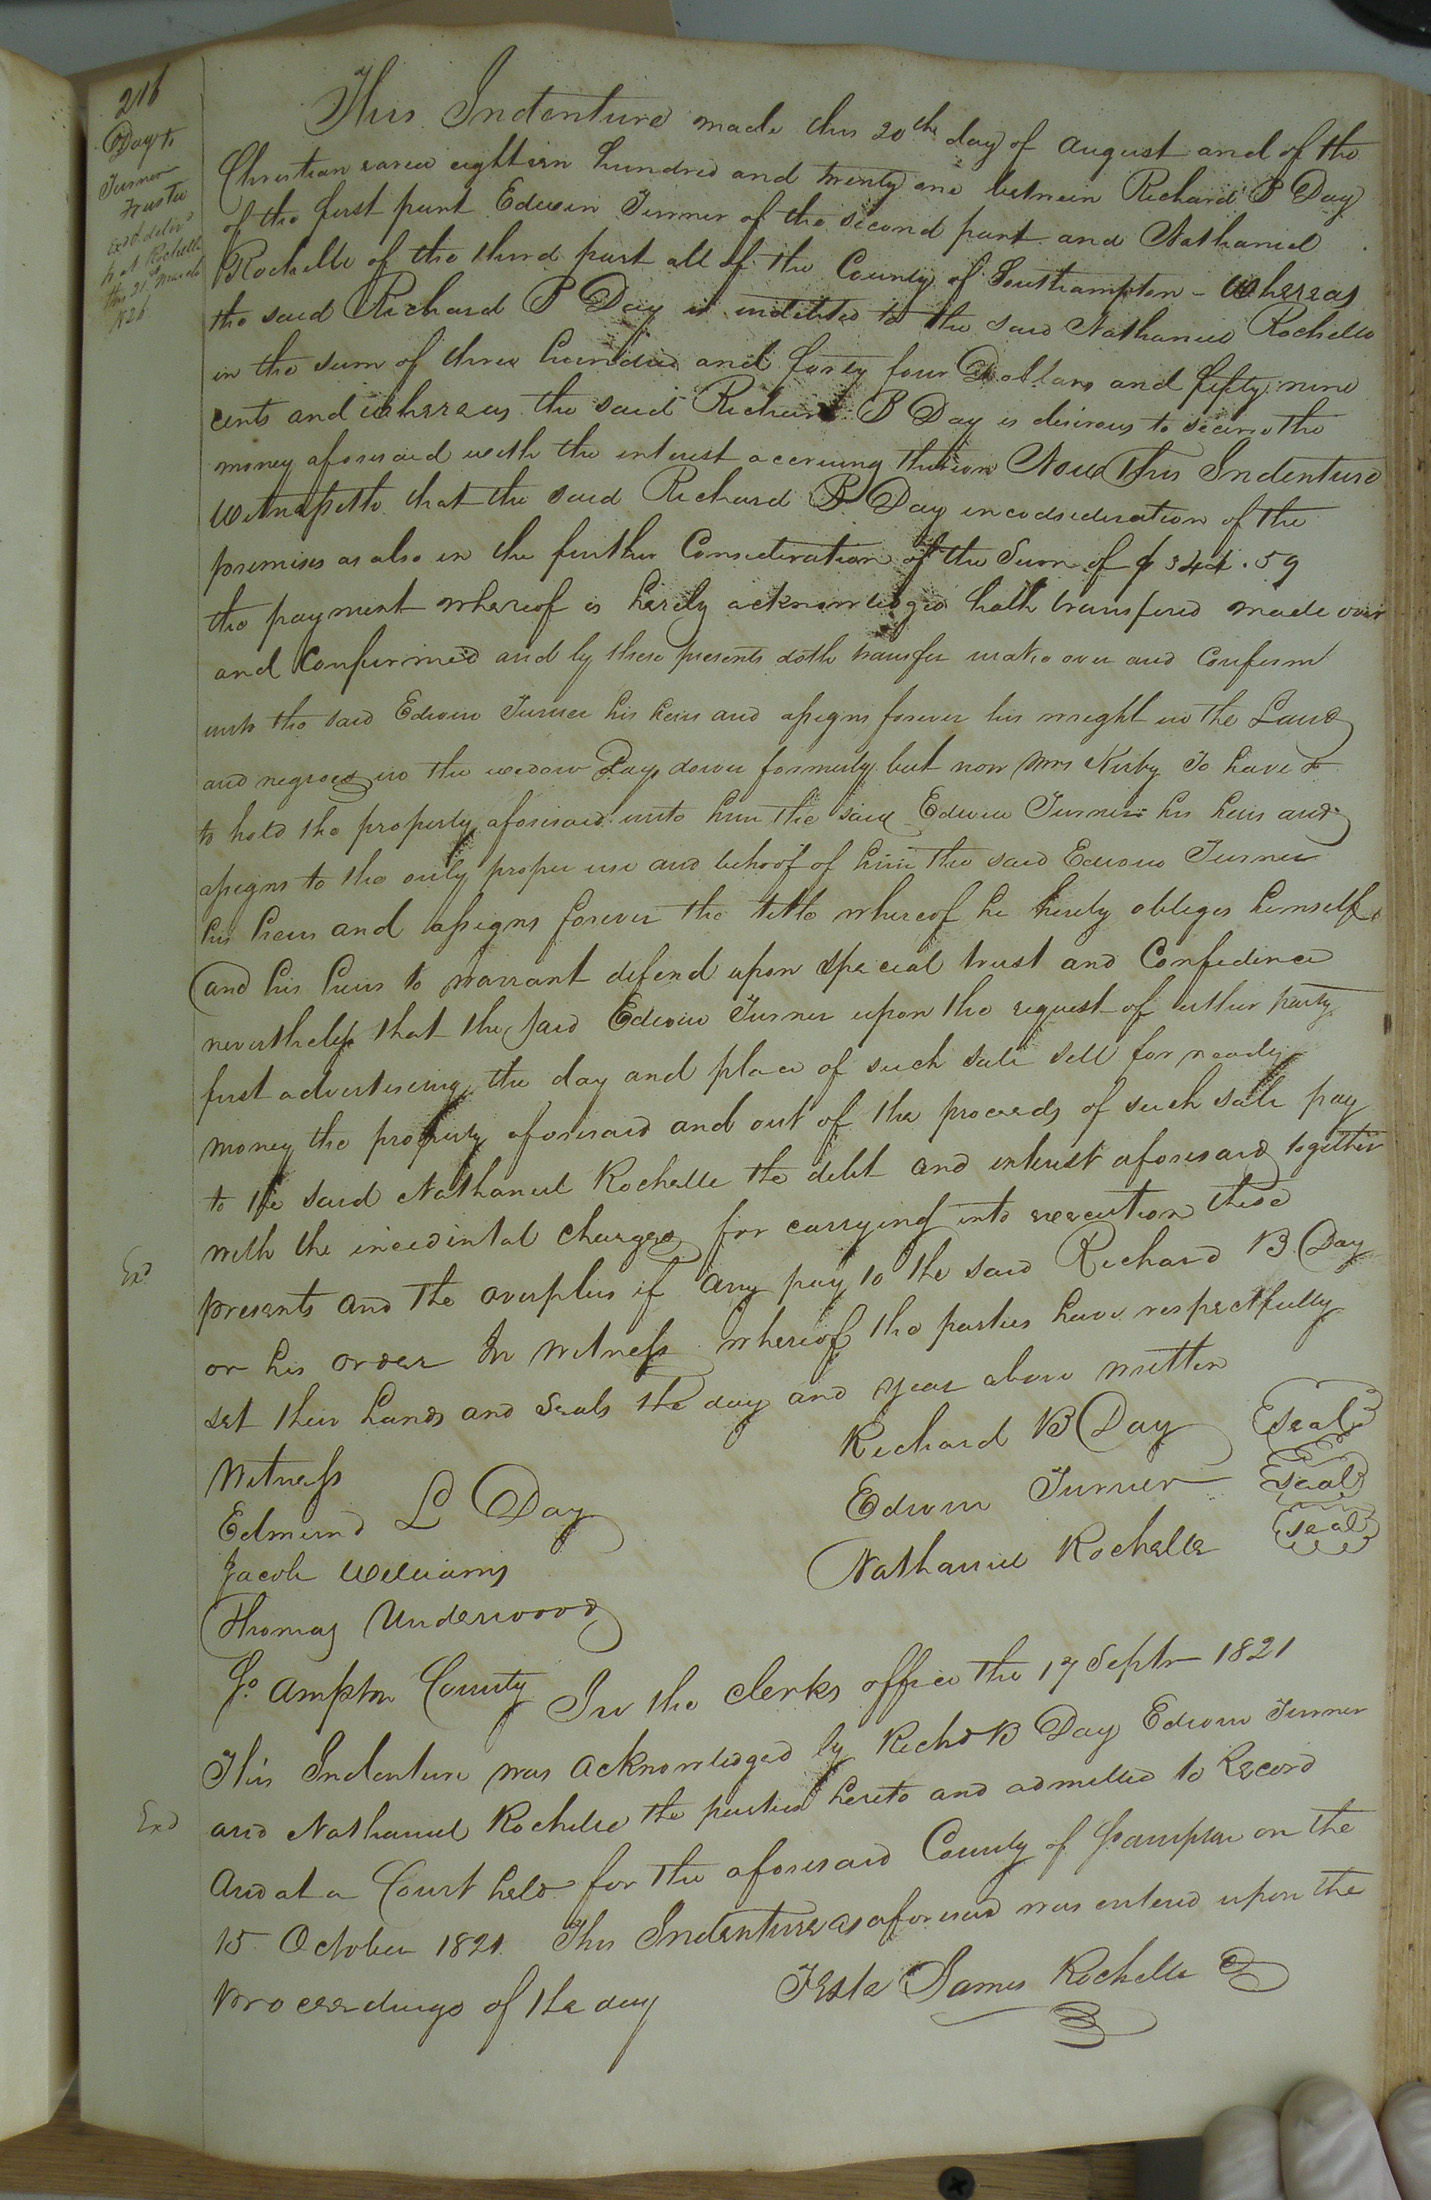 216
Day to
Turner
Trustee
Exd & deliv
to at Rochelle
this 21st March
1826
This Indenture made this 20th day of August and of the
Christian earea eighteen hundred and twenty one between Richard B Day
of the first part Edwin Turner of the second part and Nathaniel
Rochelle of the third part all of the County of Southampton - Whereas
the said Richard B Day is indebted to the said Nathaniel Rochelle
in the sum of three hundred and forty four Dollars and fifty nine
cents and whereas the said Richard B Day is desirous to secure the
money aforesaid with the interest accruing thereon Now This Indenture
Witnesseth that the said Richard B Day in codsideration of the
premises as also in the further Consideration of the Sum of $ 344.59
the payment whereof is hereby acknowledged hath transfered made over
and Confirmed and by these presents doth transfer make over and Confirm
unto the said Edwin Turner his heirs and assigns forever his wright in the Land
and negroes in the widow Days dower formerly but now Mrs Kirby To have &
to hold the property aforesaid unto him the said Edwin Turner his heirs and
assigns to the only proper use and behoof of him the said Edwin Turner
his heirs and assigns forever the title whereof he hereby obliges himself
and his heirs to warrant defend upon special trust and Confidence
nevertheless that the said Edwin Turner upon the request of either party
first advertising the day and place of such sale sell for ready
money the property aforesaid and out of the proceeds of such sale pay
to the said Nathaniel Rochelle the debt and interest aforesaid together
with the incidental charges for carrying into execution these
Exd
presents and the overplus if any pay to the said Richard B Day
or his order In Witness whereof the parties have respectfully
set their hands and Seals the day and year above written
Richard B Day seal
Witness
Edwin Turner seal
Edmund L Day
Nathaniel Rochelle seal
Jacob Williams
Thomas Underwood
So ampton County In the clerks office the 17 Septr 1821
This Indenture was acknowledged by Richd B Day Edwin Turner
Exd
and Nathaniel Rochelle the parties hereto and admitted to Record
And at a Court held for the aforesaid County of Soampton on the
15 October 1821. This Indenture as aforesaid was entered upon the
proceedings of the day
Teste James Rochelle